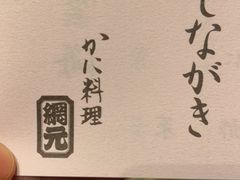 しながき
かに料理
網元